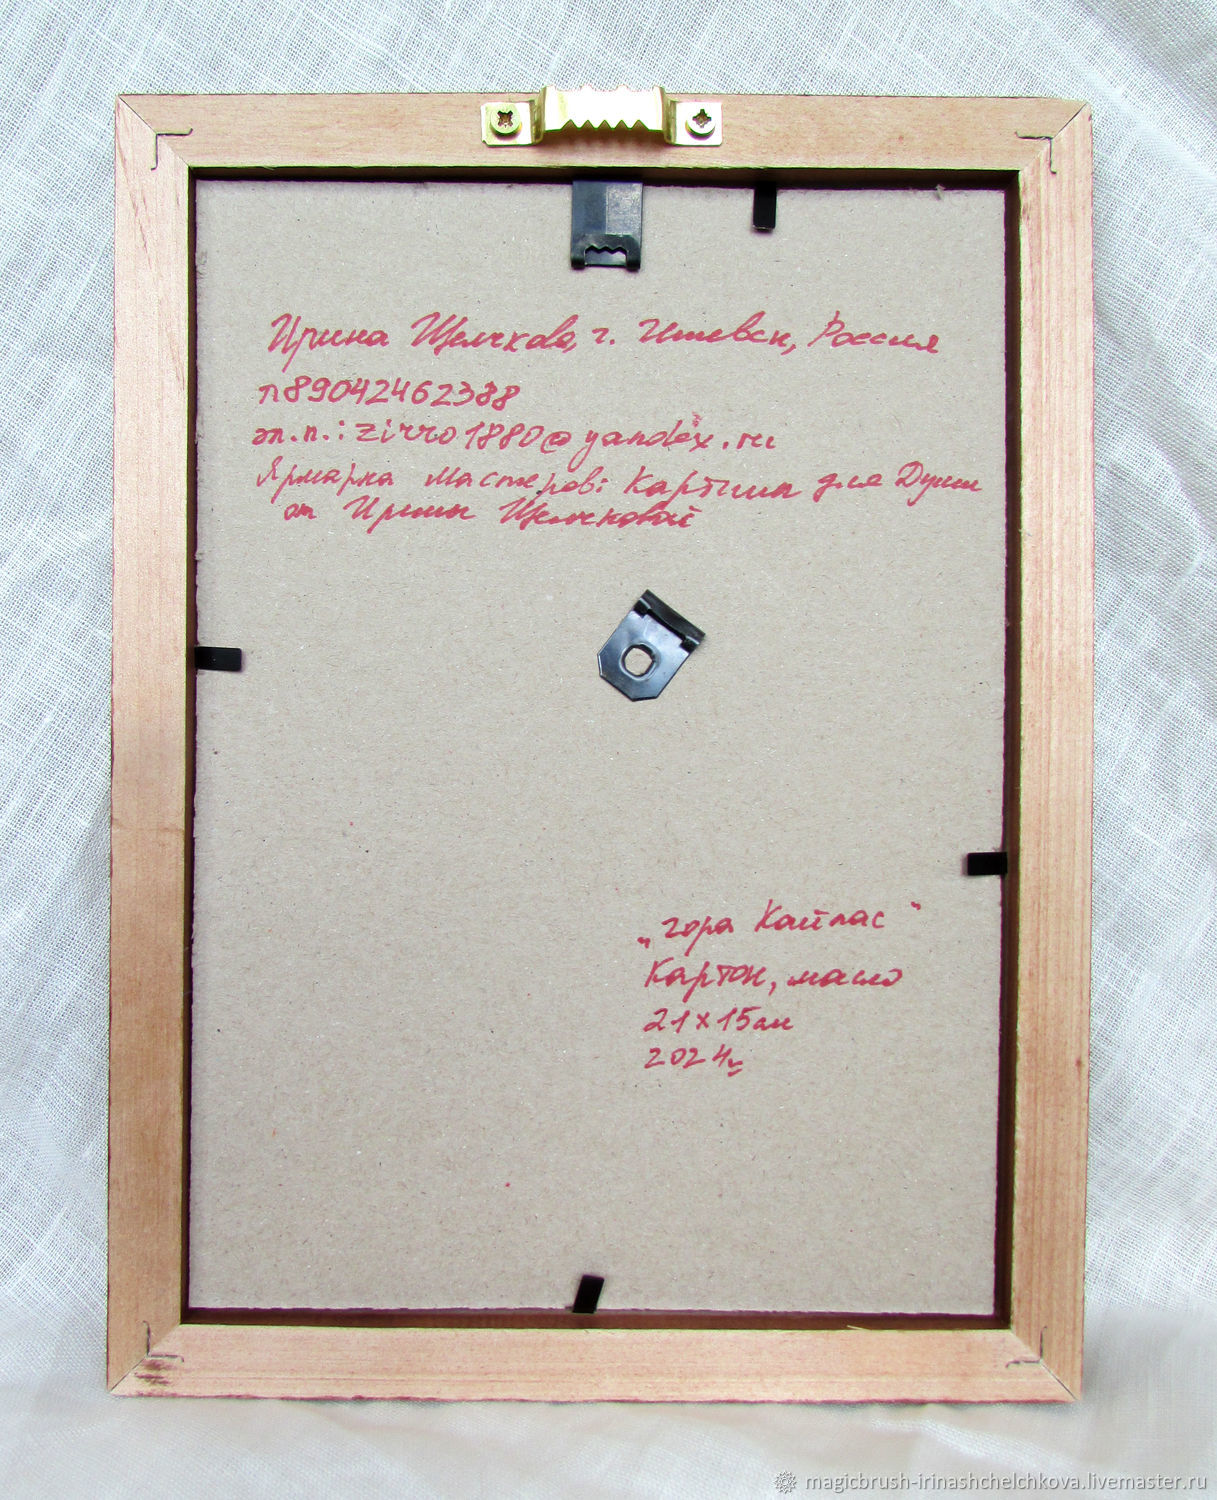 Ирина Щелчкова, г. Ижевск, Россия
т89042462388
эл.п.: zirro1880@yandex.ru
Ярмарка Мастеров: Картины для Души
от Ирины Щелчковой
"гора Кайлас"
Картон, масло
21х15см
2024г
magicbrush-irinashchelchkova.livemaster.ru